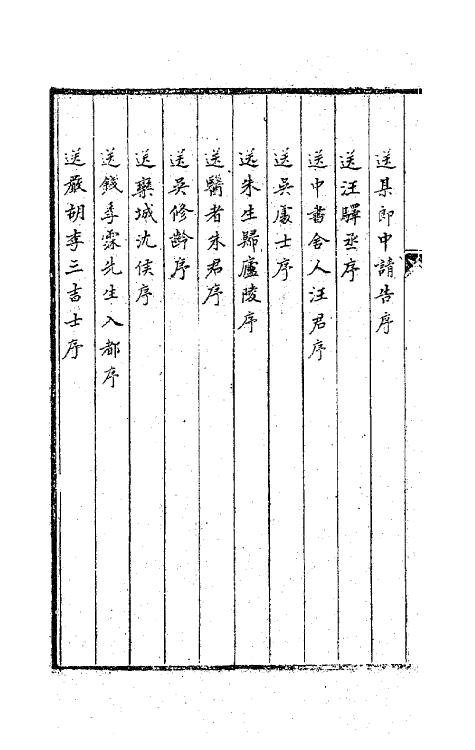 送某郎中請告序
送汪驛丞序
送中書舍人汪君序
送吳處士序
送朱生歸廬陵序
送醫者朱君序
送吳修齡序
送欒城沈侯序
送錢季霖先生入都序
送嚴胡李三吉士序